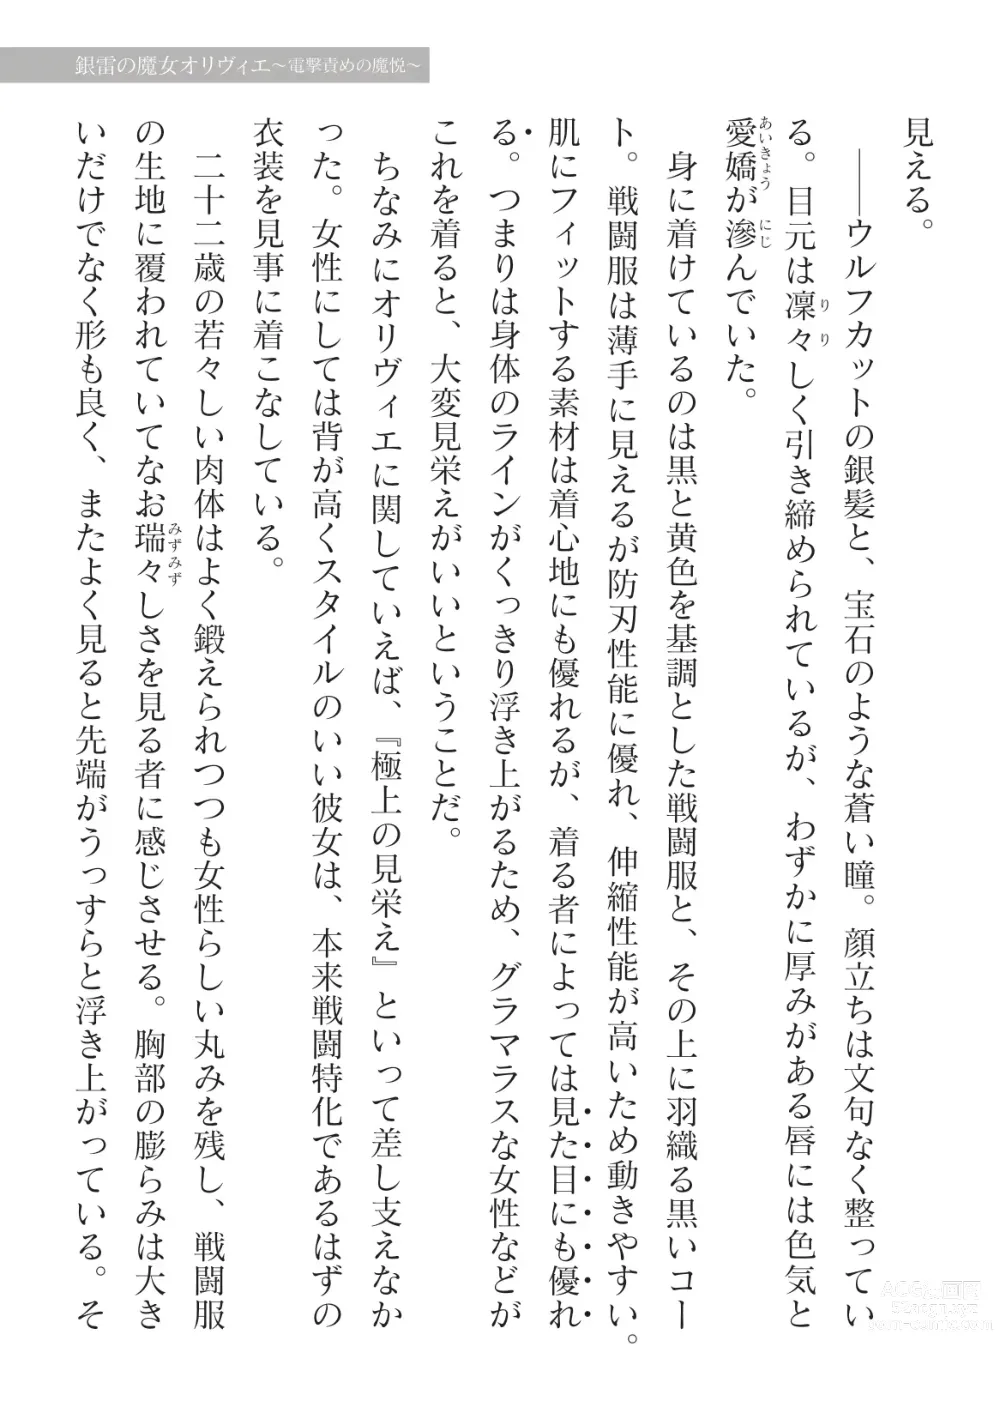 銀雷の魔女オリヴィエ～電撃責めの魔悦～
見える。
――ウルフカットの銀髪と、宝石のような蒼い瞳。顔立ちは文句なく整ってい
る。目元は凛々しく引き締められているが、わずかに厚みがある唇には色気と
愛嬌が滲んでいた。
身に着けているのは黒と黄色を基調とした戦闘服と、その上に羽織る黒いコー
ト。戦闘服は薄手に見えるが防刃性能に優れ、伸縮性能が高いため動きやすい。
肌にフィットする素材は着心地にも優れるが、着る者によっては見た目にも優れ
る。つまりは身体のラインがくっきり浮き上がるため、グラマラスな女性などが
これを着ると、大変見栄えがいいということだ。
ちなみにオリヴィエに関していえば、『極上の見栄え』といって差し支えなか
った。女性にしては背が高くスタイルのいい彼女は、本来戦闘特化であるはずの
衣装を見事に着こなしている。
二十二歳の若々しい肉体はよく鍛えられつつも女性らしい丸みを残し、戦闘服
の生地に覆われていてなお瑞々しさを見る者に感じさせる。胸部の膨らみは大き
いだけでなく形も良く、またよく見ると先端がうっすらと浮き上がっている。そ